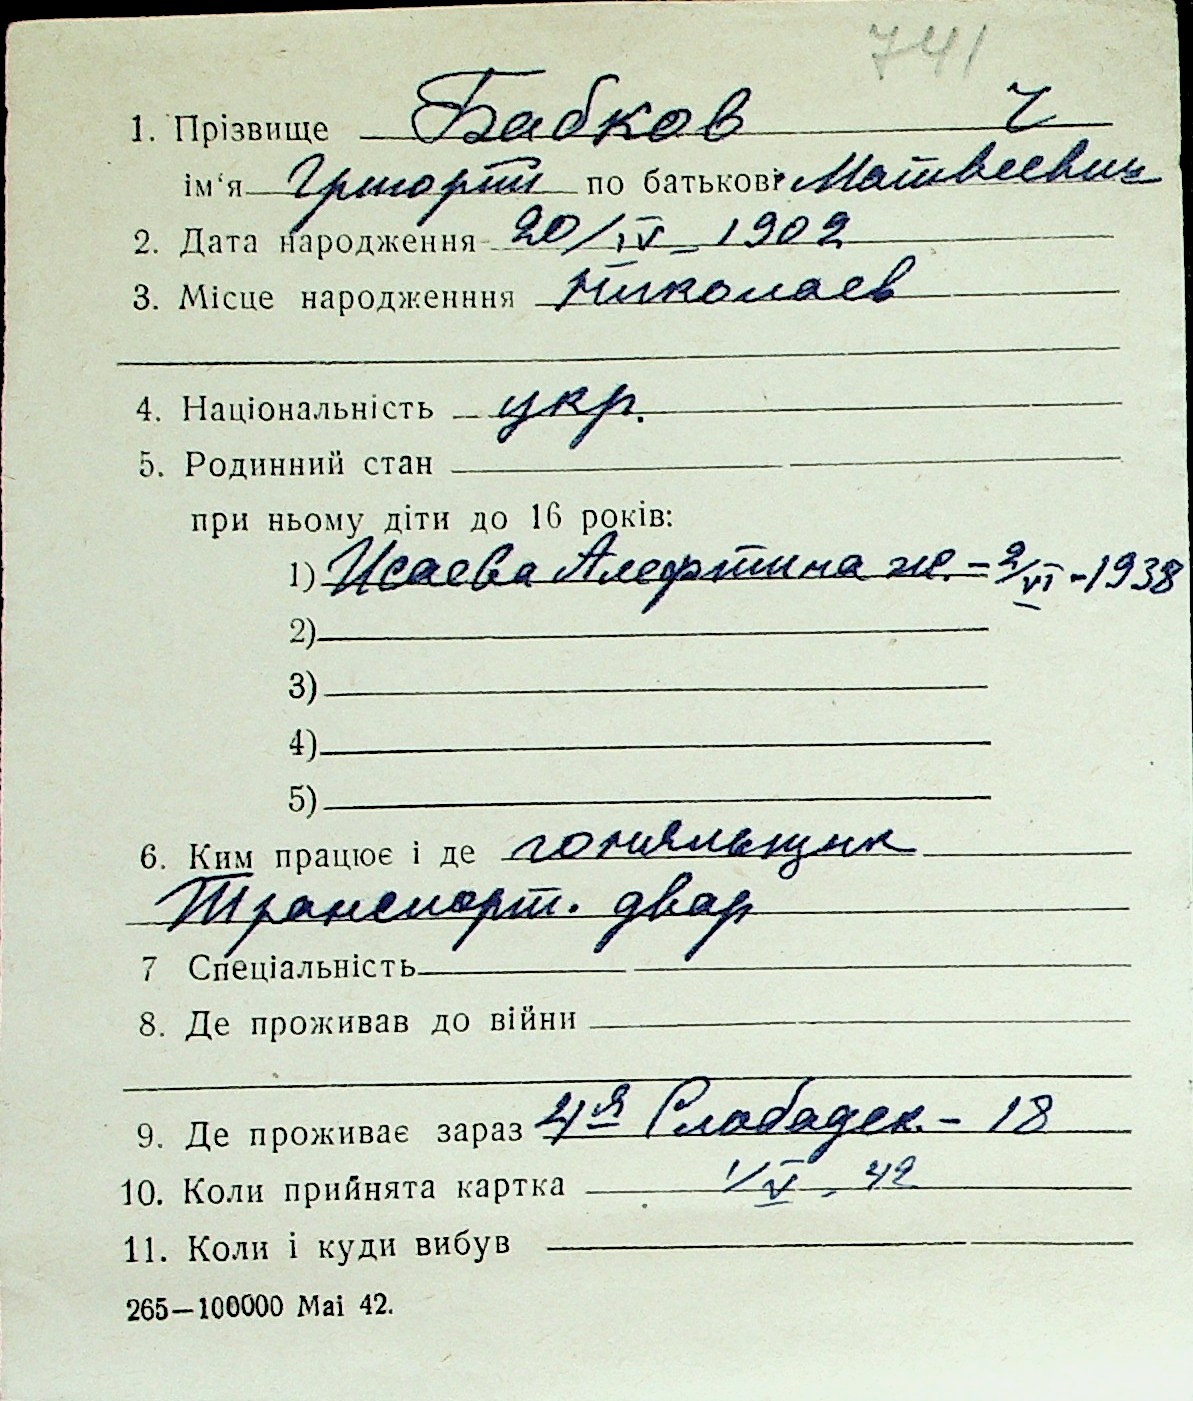 741
1. Прізвище Бабков Ч
ім'я Григорий по батькові Матвеевич
2. Дата народження 20/IV - 1902
3. Місце народженння Николаев
4. Національність укр.
5. Родинний стан
при ньому діти до 16 років:
1) Исаева Алефтина ж. - 2/VI - 1938
2)
3)
4)
5)
6. Ким працює і де гоняльщик
Транспорт. двор
7 Спеціальність
8. Де проживав до війни
9. Де проживає зараз 4я Слободск. - 18
10. Коли прийнята картка 1/V. 42
11. Коли і куди вибув
265—100000 Mai 42.